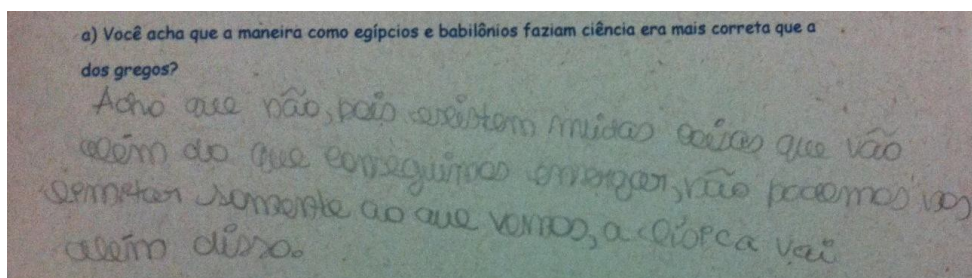 a) Você acha que a maneira como egípcios e babilônios faziam ciência era mais correta que a
dos gregos?
Acho que não, pois existem muitas coisas que vão
além do que conseguimos enxergar, não podemos nos
remeter somente ao que vemos, a ciência vai
além disso.